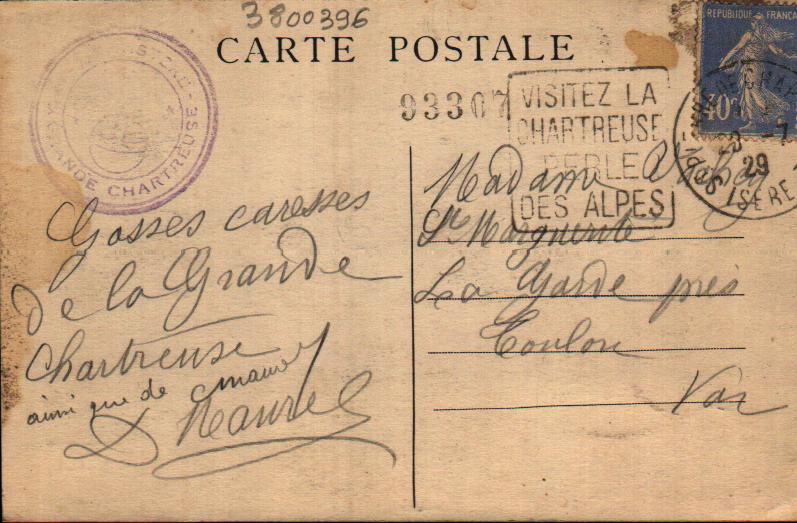 3800396
CARTE POSTALE
REPUBLIQUE FRANCAISE
40c
93307
VISITEZ LA
CHARTREUSE
PERLE
DES ALPES
29
ISERE
GRANDE CHARTREUSE
Gosses caresses
de la Grande
Chartreuse
ainsi que de
D Maurel
Madame
Ste Marguerite
La Garde près
Toulon
Var